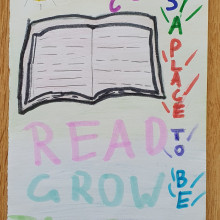 READ
GROW
S A PLACE TO BE